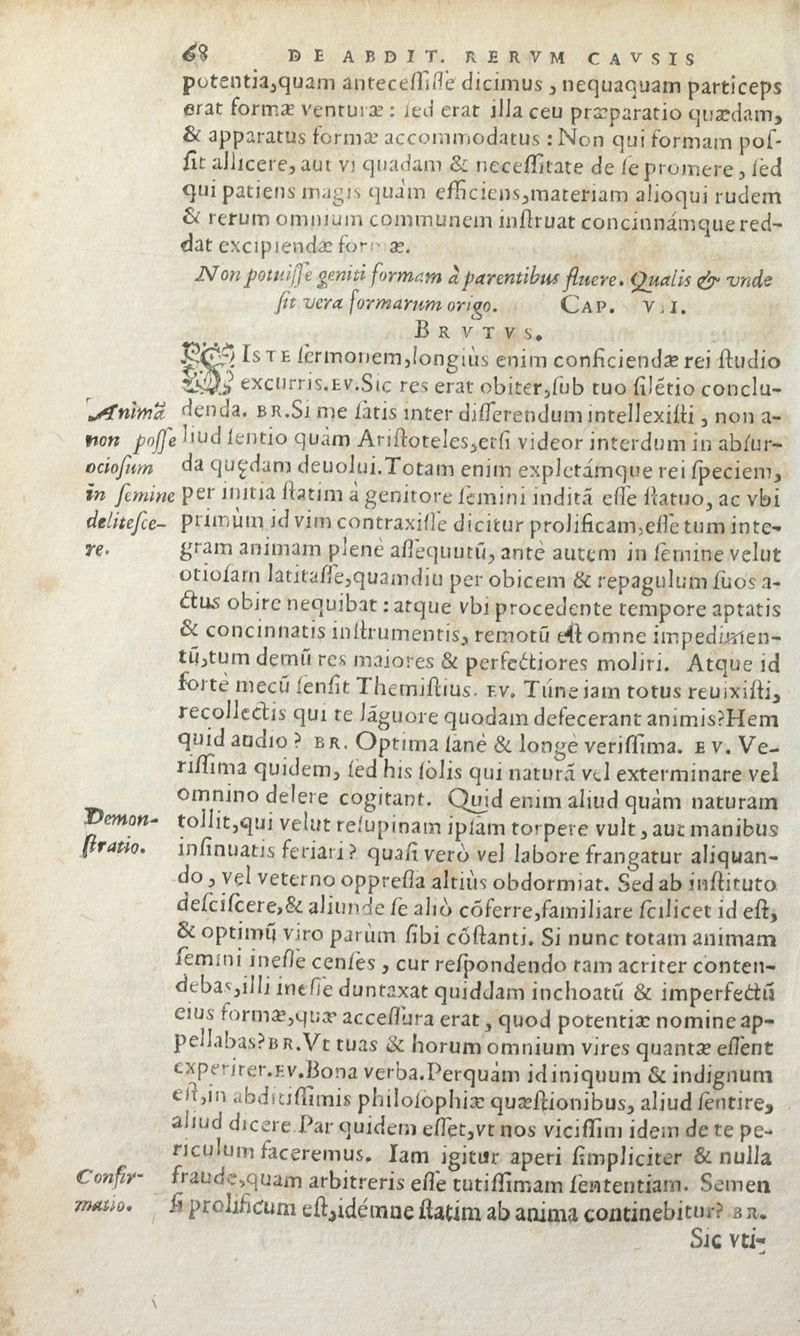 68 DE ABDIT. RERVM CAVSIS
potentia,quam antecessisse dicimus , nequaquam particeps
erat formæ venturæ : sed erat illa ceu præparatio quædam,
& apparatus formæ accommodatus : Non qui formam pos-
sit allicere, aut vi quadam & necessitate de se promere , sed
qui patiens magis quàm efficiens,materiam alioqui rudem
& rerum omnium communem instruat concinnámque red-
dat excipiendæ formæ.
Non potuisse geniti formam à parentibus fluere. Qualis & vnde
sit vera formarum origo. CAP. VII.
BRVTVS.
SISTE sermonem,longiùs enim conficiendæ rei studio
excurris.EV.Sic res erat obiter,sub tuo silétio conclu-
denda. BR.Si me satis inter disserendum intellexisti , non a-
liud sentio quàm Aristoteles,etsi videor interdum in absur-
da quędam deuolui.Totam enim expletámque rei speciem,
per initia statim à genitore semini inditā esse statuo, ac vbi
primùm id vim contraxisse dicitur prolificam,esse tum inte-
gram animam plenè assequutū, antè autem in semine velut
otiosam latitasse,quamdiu per obicem & repagulum suos a-
ctus obire nequibat : atque vbi procedente tempore aptatis
& concinnatis instrumentis, remotū est omne impedimen-
tū,tum demū res maiores & perfectiores moliri. Atque id
fortè mecū sensit Themistius. EV. Túne iam totus reuixisti,
recollectis qui te lāguore quodam defecerant animis?Hem
quid audio ? BR. Optima sanè & longè verissima. EV. Ve-
rissima quidem, sed his solis qui naturā vel exterminare vel
omnino delere cogitant. Quid enim aliud quàm naturam
tollit,qui velut resupinam ipsam torpere vult , aut manibus
insinuatis feriari ? quasi verò vel labore frangatur aliquan-
do , vel veterno oppressa altiùs obdormiat. Sed ab instituto
desciscere,& aliunde se aliò cōferre,familiare scilicet id est,
& optimū viro parùm sibi cōstanti. Si nunc totam animam
semini inesse censes , cur respondendo tam acriter conten-
debas,illi inesse duntaxat quiddam inchoatū & imperfectū
eius formæ,quæ accessura erat , quod potentiæ nomine ap-
pellabas?BR.Vt tuas & horum omnium vires quantæ essent
experirer.EV.Bona verba.Perquàm id iniquum & indignum
est,in abditissimis philosophiæ quæstionibus, aliud sentire,
aliud dicere.Par quidem esset,vt nos vicissim idem de te pe-
riculum faceremus. Iam igitur aperi simpliciter & nulla
fraude,quam arbitreris esse tutissimam sententiam. Semen
si prolificum est,idémne statim ab anima continebitur? BR.
Sic vti-
Animā
non posse
ociosum
in semine
delitesce-
re.
Demon-
stratio.
Confir-
matio.